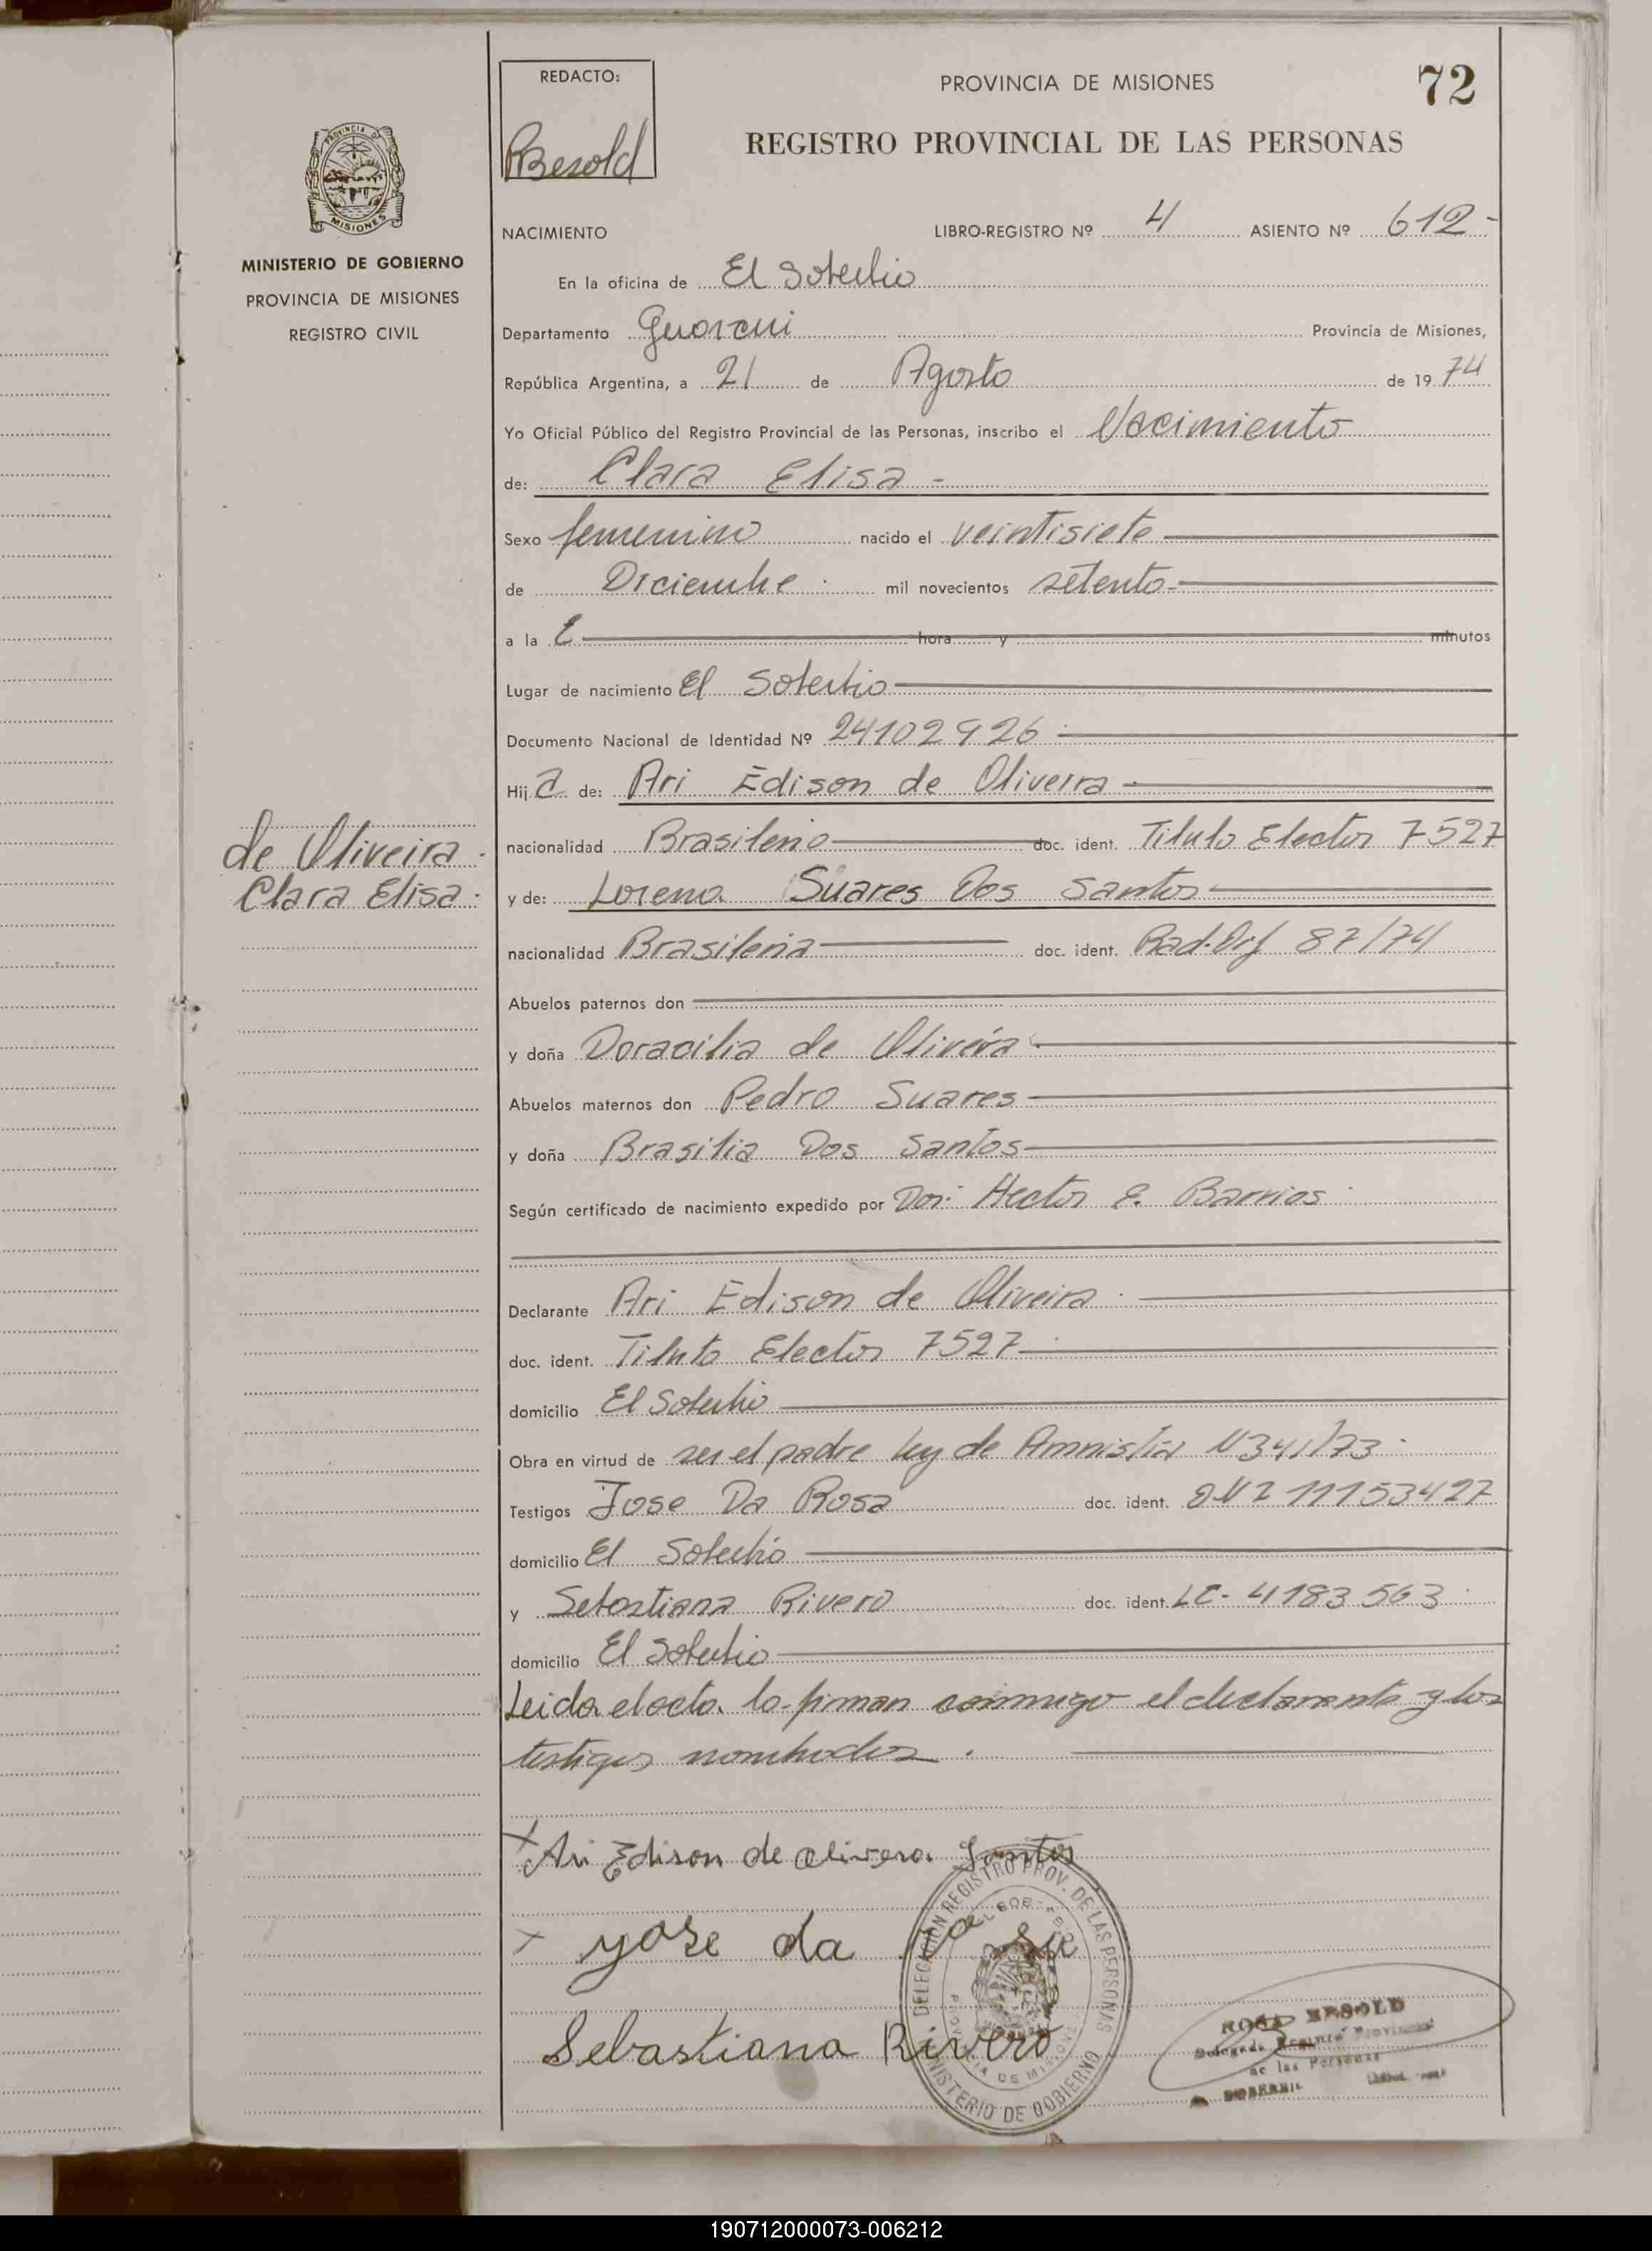 REDACTO:
Besold
PROVINCIA DE MISIONES
72
REGISTRO PROVINCIAL DE LAS PERSONAS
PROVINCIA DE
MISIONES
MINISTERIO DE GOBIERNO
PROVINCIA DE MISIONES
REGISTRO CIVIL
NACIMIENTO LIBRO-REGISTRO Nº 4 ASIENTO Nº 612-
En la oficina de El Soberbio
Departamento Guarani Provincia de Misiones,
República Argentina, a 21 de Agosto de 1974
Yo Oficial Público del Registro Provincial de las Personas, inscribo el Nacimiento
de: Clara Elisa -
Sexo femenino nacido el veintisiete
de Diciembre mil novecientos setenta
a la hora y minutos
Lugar de nacimiento El Soberbio
Documento Nacional de Identidad Nº 24102926
Hija de: Ari Edison de Oliveira
nacionalidad Brasileno doc. ident. Titulo Elector 7527
de Oliveira
Clara Elisa
y de: Lorena Suares Dos Santos
nacionalidad Brasilena doc. ident. 87/74
Abuelos paternos don
y doña Doracilia de Olivera
Abuelos maternos don Pedro Suares
y doña Brasilia Dos Santos
Según certificado de nacimiento expedido por Dor: Hector E. Barrios
Declarante Ari Edison de Oliveira
doc. ident. Titulo Elector 7527
domicilio El Soberbio
Obra en virtud de ser el padre ley de Amnistia N 341/73
Testigos Jose Da Rosa doc. ident. DNI 11153427
domicilio El Soberbio
y Sebastiana Rivero doc. ident. LC- 4183563
domicilio El Soberbio
Leida el acta la firman conmigo el declarante y los
testigos nombrados.
x Ari Edison de olivera Santos
x yose da rosa
Sebastiana Rivero
DELEGACION REGISTRO PROV. DE LAS PERSONAS
MINISTERIO DE GOBIERNO
PROVINCIA DE MISIONES
ROSA BESOLD
Delegada Registro Provincial
de las Personas
190712000073-006212